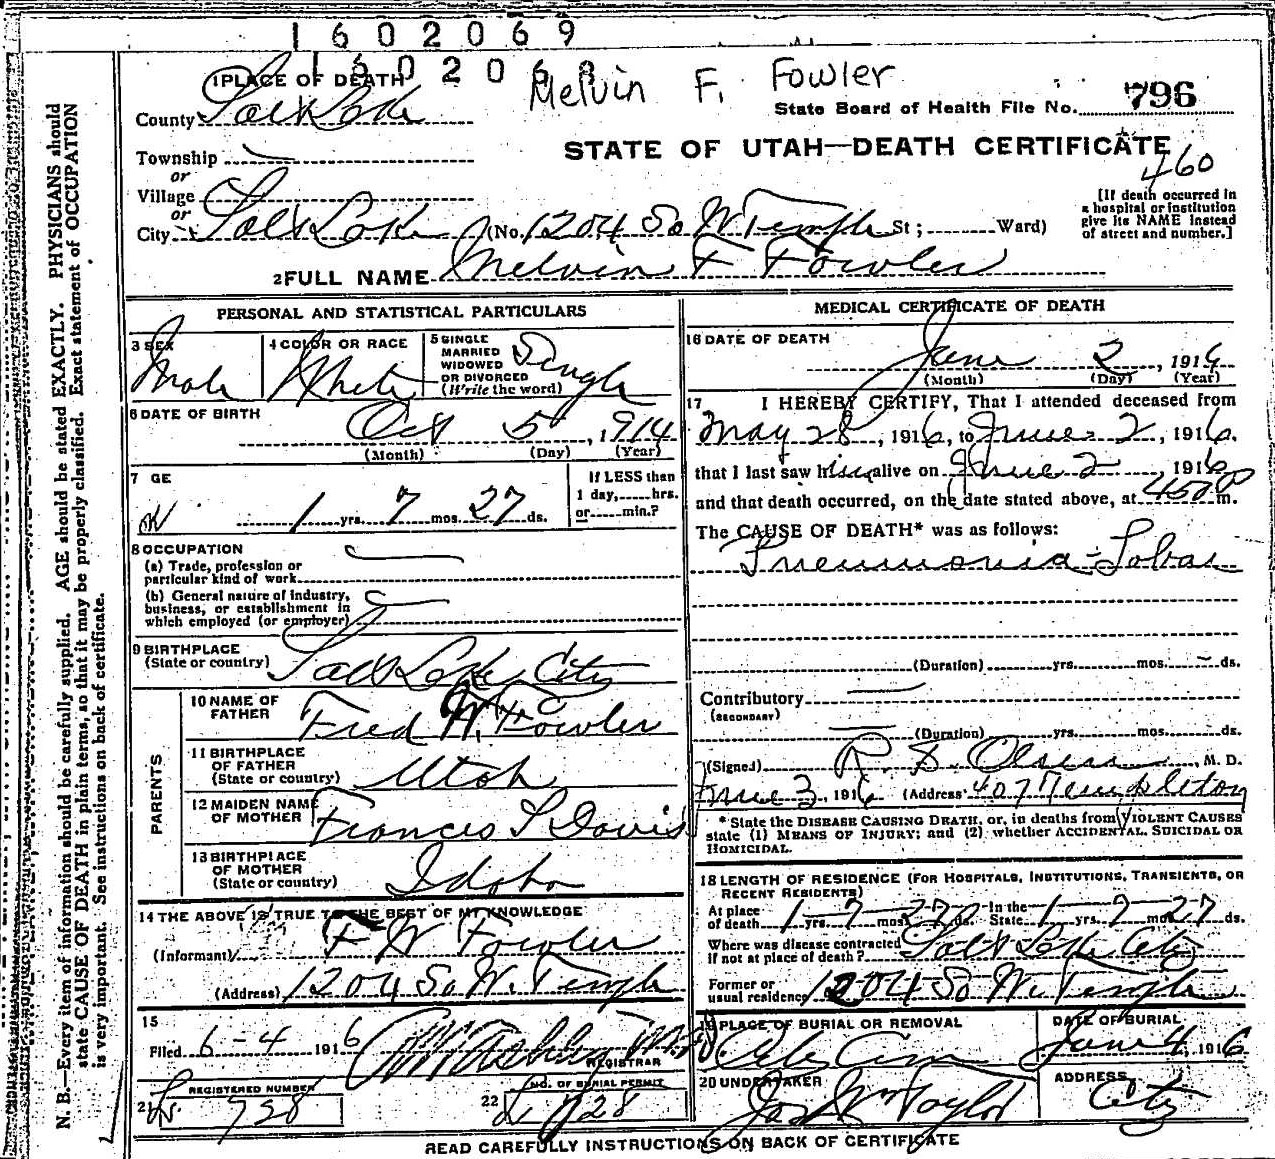 1602069
160206
Melvin F. Fowler
1 PLACE OF DEATH
State Board of Health File No. 796
County Salt Lake
STATE OF UTAH—DEATH CERTIFICATE
460
Township
or
Village
or
City Salt Lake (No. 1204 So W Temple St; Ward)
[If death occurred in
a hospital or institution
give its NAME instead
of street and number.]
2 FULL NAME Melvin F Fowler
PERSONAL AND STATISTICAL PARTICULARS
3 SEX Male
4 COLOR OR RACE White
5 SINGLE
MARRIED
WIDOWED
OR DIVORCED
(Write the word) Single
6 DATE OF BIRTH
Oct 5, 1914
(Month) (Day) (Year)
7 GE
1 yrs. 7 mos. 27 ds.
If LESS than
1 day, hrs.
or min.?
8 OCCUPATION
(a) Trade, profession or
particular kind of work
(b) General nature of industry,
business, or establishment in
which employed (or employer)
9 BIRTHPLACE
(State or country) Salt Lake City
PARENTS
10 NAME OF
FATHER Fred W. Fowler
11 BIRTHPLACE
OF FATHER
(State or country) Utah
12 MAIDEN NAME
OF MOTHER Frances S Davis
13 BIRTHPLACE
OF MOTHER
(State or country) Idaho
14 THE ABOVE IS TRUE TO THE BEST OF MY KNOWLEDGE
(Informant) F W Fowler
(Address) 1204 So W. Temple
15
Filed 6-4 1916
REGISTRAR
21 REGISTERED NUMBER
728
22 NO. OF BURIAL PERMIT
728
MEDICAL CERTIFICATE OF DEATH
16 DATE OF DEATH
June 2, 1916
(Month) (Day) (Year)
17 I HEREBY CERTIFY, That I attended deceased from
May 28, 1916, to June 2, 1916.
that I last saw him alive on June 2, 1916
and that death occurred, on the date stated above, at 450P m.
The CAUSE OF DEATH* was as follows:
Pneumonia-Lobar
(Duration) yrs. mos. ds.
Contributory
(SECONDARY)
(Duration) yrs. mos. ds.
(Signed) R. S. Olsen, M. D.
June 3, 1916 (Address 407 Templeton
* State the DISEASE CAUSING DEATH, or, in deaths from VIOLENT CAUSES
state (1) MEANS OF INJURY; and (2) whether ACCIDENTAL, SUICIDAL OR
HOMICIDAL.
18 LENGTH OF RESIDENCE (FOR HOSPITALS, INSTITUTIONS, TRANSIENTS, OR
RECENT RESIDENTS)
At place
of death 1 yrs. 7 mos. 27 ds. In the
State 1 yrs. 7 mos. 27 ds.
Where was disease contracted
if not at place of death? Salt Lake City
Former or
usual residence 1204 So W. Temple
19 PLACE OF BURIAL OR REMOVAL
DATE OF BURIAL
June 4, 1916
20 UNDERTAKER
Jos Wm Taylor
ADDRESS
City
READ CAREFULLY INSTRUCTIONS ON BACK OF CERTIFICATE
N. B.—Every item of information should be carefully supplied. AGE should be stated EXACTLY. PHYSICIANS should
state CAUSE OF DEATH in plain terms, so that it may be properly classified. Exact statement of OCCUPATION
is very important. See instructions on back of certificate.